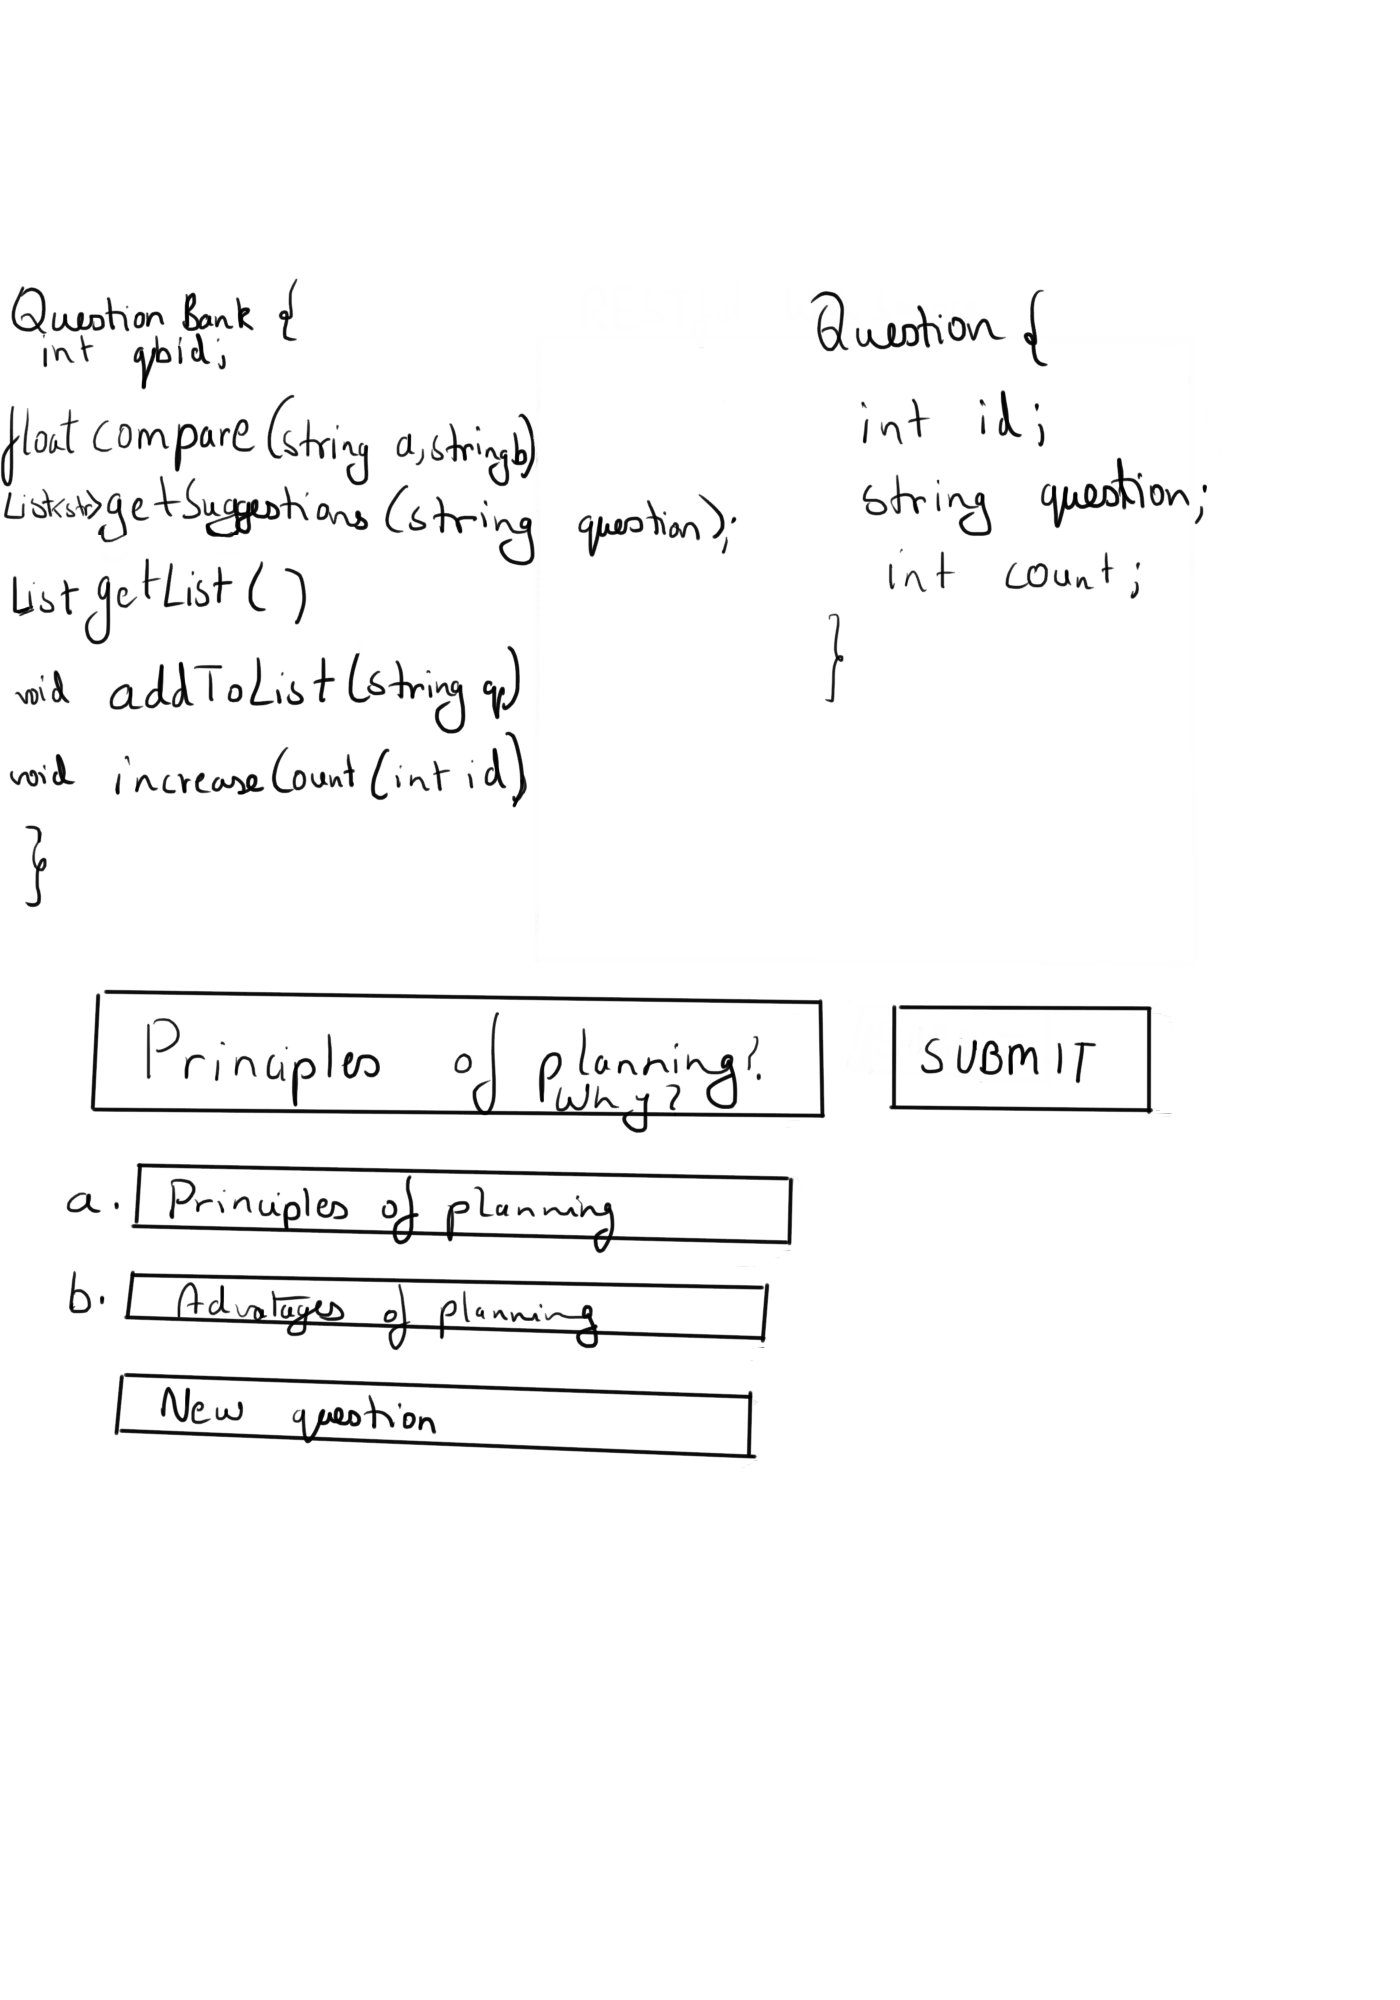 Question Bank {
int qbid;
float compare (string a, string b)
List<str> getSuggestions (string question);
List getList ( )
void addToList (string q)
void increaseCount (int id)
}
Question {
int id;
string question;
int count;
}
Principles of planning?
Why?
SUBMIT
a. Principles of planning
b. Advatages of planning
New question